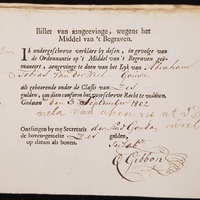 Billet van aangeevinge, wegens het
Middel van 't Begraven.
Ik ondergeschreve verklare by desen, in gevolge van
de Ordonnantie op 't Middel van 't Begraven gee-
maneert, aangevinge te doen van het Lyk van Abraham
Tobias Van der Wiel Gouda
als gehoorende onder de Classis van Zes
gulden, om dien conform het voorschreve Recht te voldoen.
Gedaan den 3 September 1802
Ontfangen by my Secretaris der Stad Gouda
de bovengemelde Zes gulden,
op datum als boven.